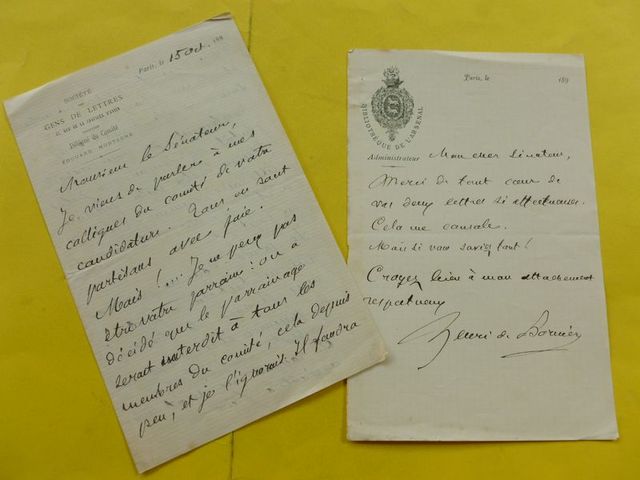 Paris, le 15 Oct. 188
SOCIÉTÉ
DES
GENS DE LETTRES
Délégué du Comité
ÉDOUARD MONTAGNE
Monsieur le Sénateur,
Je viens de parler à mes
collègues du comité de votre
candidature. Tous en sont
partisans avec joie.
Mais !.... Je ne peux pas
être votre parrain : on a
décidé que le parrainage
serait interdit à tous les
membres du comité, cela depuis
peu, et je l'ignorais. Il faudra
Paris, le 189
BIBLIOTHÈQUE DE L'ARSENAL
Administrateur
Mon cher Sénateur,
Merci de tout cœur de
vos deux lettres si affectueuses.
Cela me console.
Mais si vous saviez tout !
Croyez bien à mon attachement
respectueux
Henri de Bornier